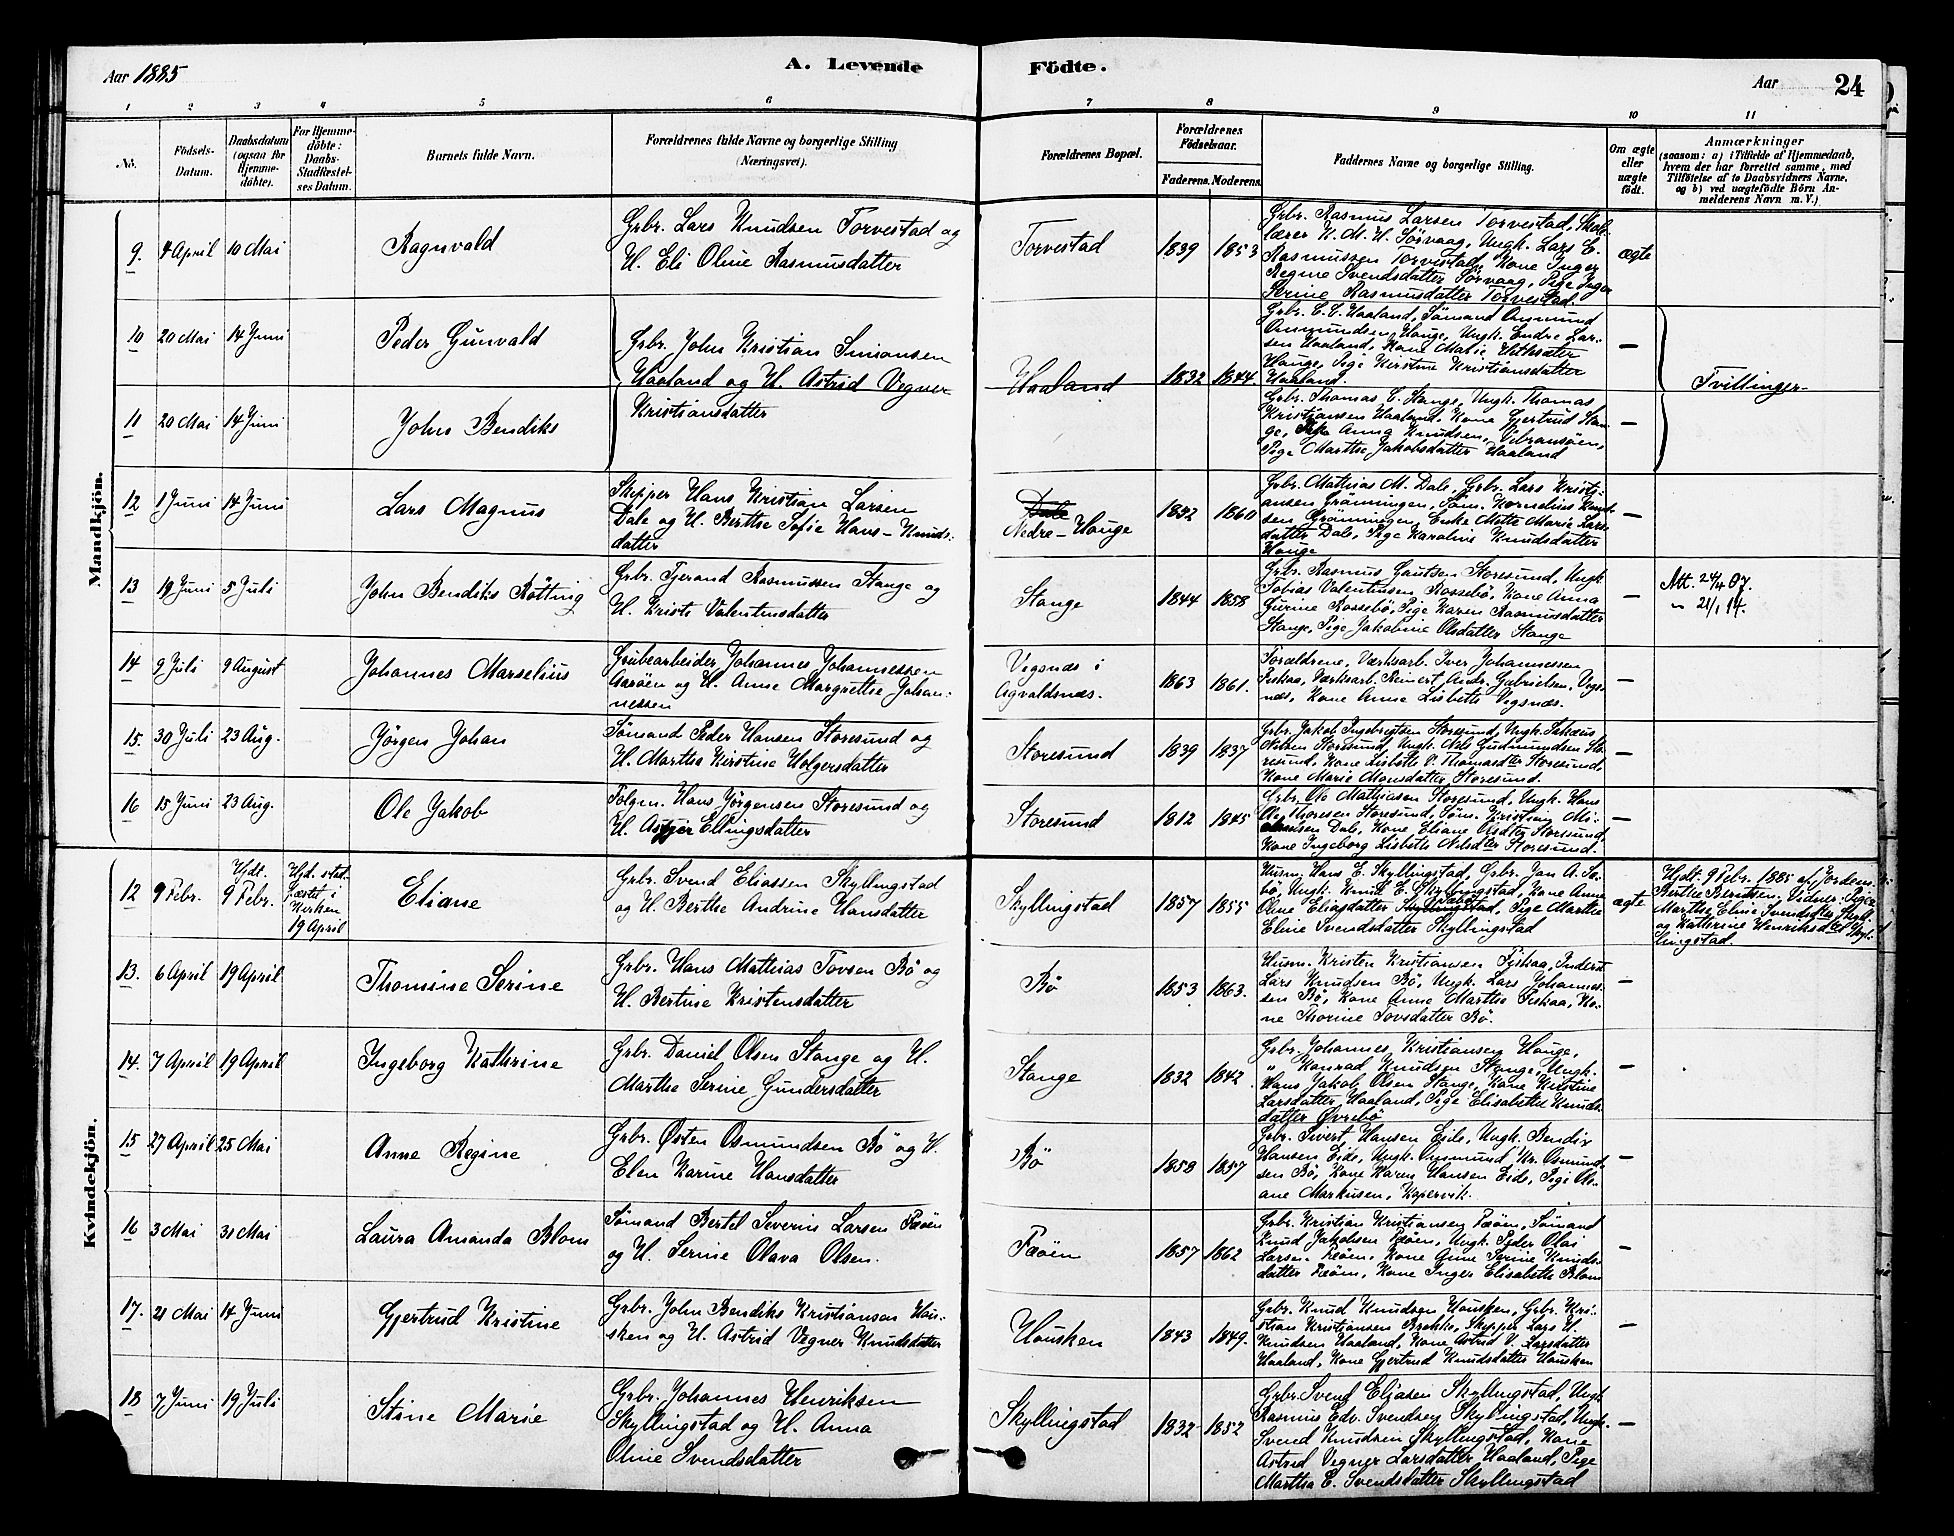 Aar 1885
A. Levende
Födte.
Aar
24
1 2 3 4 5 6 7 8 9 10 11
No.
Födsels-
Datum.
Daabsdatum
(ogsaa for
Hjemme-
döbte).
For Hjemme-
döbte:
Daabs-
Stadfæstel-
ses Datum.
Barnets fulde Navn.
Forældrenes fulde Navne og borgerlige Stilling
(Næringsvei).
Forældrenes Bopæl.
Forældrenes
Födselsaar.
Faderens. Moderens.
Faddernes Navne og borgerlige Stilling.
Om ægte
eller
uægte
födt.
Anmærkninger
(saasom: a) i Tilfælde af Hjemmedaab,
hvem der har forrettet samme, med
Tilföielse af to Daabsvidners Navne,
og b) ved uægtefödte Börn An-
melderens Navn m. V.)
Mandkjön.
9. 4 April 10 Mai
Ragnvald
Grbr. Lars Knudsen Torvestad og
H. Eli Oline Rasmusdatter
Torvestad
1839 1853
Grbr. Rasmus Larsen Torvestad, Skol-
lærer K. M. H. Sörvaag, Ungk. Lars E.
Rasmussen Torvestad, Kone Inger
Regine Svendsdatter Sörvaag, Pige Inger
Serine Rasmusdatter Torvestad.
ægte
10 20 Mai 14 Juni
Peder Gunvald
Grbr. John Kristian Simonsen
Haaland og H. Astrid Vegner
Kristiansdatter
Haaland
1832 1844
Grbr. E. E. Haaland, Sömand Osmund
Osmundsen Hauge, Ungk. Endre Lar-
sen Haaland, Kone Malie
Hauge, Pige Kirstine Kristiansdatter
Haaland.
—
Tvillinger
11 20 Mai 14 Juni
John Bendiks
Grbr. Thomas E. Stange, Ungk. Thomas
Kristiansen Haaland, Kone Gjertrud Stan-
ge, Anna Knudsen, Vibransöen,
Pige Marthe Jakobsdatter Haaland
—
12 1 Juni 14 Juni
Lars Magnus
Skipper Hans Kristian Larsen
Dale og H. Berthe Sofie Hans-Knuds-
datter
Dale
Nedre-Hauge
1842 1860
Grbr. Mathias M. Dale, Grbr. Lars Kristi-
ansen Grönningen, Söm. Kornelius Knud-
sen Grönningen, Enke Mette Marie Lars-
datter Dale, Pige Karoline Knudsdatter
Hauge
—
13 18 Juni 5 Juli
John Bendiks Rötting
Grbr. Tjerand Rasmussen Stange og
H. Kristi Valentinsdatter
Stange
1844 1858
Grbr. Rasmus Gautsen Storesund, Ungk
Tobias Valentinsen Rossebö, Kone Anna
Gurine Rossebö, Pige Karen Rasmusdatter
Stange, Pige Jakobine Olsdatter Stange
—
Att. 24/4 07.
" 21/1 14.
14 9 Juli 9 August
Johannes Marselius
Grubearbeider Johannes Johannessen
Aaröen og H. Anne Margrethe Johan-
nessen
Vigsnæs i
Agvaldsnæs.
1863 1861.
Forældrene, Værksarb. Iver Johannessen
Fiskaa, Værksarb. Reinert Andr. Gabrielsen, Vigs-
næs, Kone Anne Lisbeth Vigsnæs.
—
15. 30 Juli 23 Aug.
Jörgen Johan
Sömand Peder Hansen Storesund og
H. Martha Kirstine Holgersdatter
Storesund
1839 1837
Grbr. Jakob Ingebretsen Storesund, Ungk.
Nilsen Storesund, Ungk. Nils Gudmundsen Sto-
resund, Kone Lisbeth V. Thomasdtr Storesund,
Kone Marie Monsdatter Storesund.
—
16 15 Juni 23 Aug.
Ole Jakob
Fölgm. Hans Jörgensen Storesund og
H. Asgjer Ellingsdatter
Storesund
1812 1845
Grbr. Ole Mathiasen Storesund, Ungk. Hans
Ol. Thoresen Storesund, Söm. Kristian Mi-
chaelsen Dale, Kone Eliane Olsdtr Storesund,
Kone Ingeborg Lisbeth Nilsdtr Storesund.
—
Kvindekjön.
12 9 Febr.
Hjdt.
9 Febr.
Hjd. stad-
fæstet i
Kirken
19 April
Eliane
Grbr. Svend Eliassen Skyllingstad
og H. Berthe Andrine Hansdatter
Skyllingstad
1857 1855
Husm. Hans E. Skyllingstad, Grbr. Jan A. Sæ-
bö, Ungk. Knud E. Skyllingstad, Kone Anne
Oline Eliasdatter Skyllingstad, Pige Marthe
Eline Svendsdatter Skyllingstad
ægte
Hjdt. 9 Febr. 1885 af Jordem.
Berthe Berntsen, Vidner: Pige
Marthe Eline Svendsdtr Skyll.
og Kathrine Henriksdtr Skyl-
lingstad.
13. 6 April 19 April
Thomine Serine
Grbr. Hans Mathias Tovsen Bö og
H. Bertine Kristensdatter
Bö
1853 1863.
Husm. Kristen Kristiansen Fiskaa, Inderst
Lars Knudsen Bö, Ungk. Lars Johannes-
sen Bö, Kone Anne Marthe Fiskaa, Ko-
ne Thorine Tovsdatter Bö.
—
14. 7 April 19 April
Ingeborg Kathrine
Grbr. Daniel Olsen Stange og H.
Marthe Serine Gundersdatter
Stange
1832 1842.
Grbr. Johannes Kristiansen Hauge,
" Konrad Knudsen Stange, Ungk.
Hans Jakob Olsen Stange, Kone Kirstine
Larsdatter Haaland, Pige Elisabeth Knuds-
datter Övrebö
—
15 27 April 25 Mai
Anne Regine
Grbr. Østen Osmundsen Bö og H.
Elen Karine Hansdatter
Bö
1858 1857
Grbr. Sivert Hansen Eide, Ungk. Bendix
Hansen Eide, Ungk. Osmund Kr. Osmund-
sen Bö, Kone Karen Hansen Eide, Pige Oli-
ane Markusen, Kopervik.
—
16 3 Mai 31 Mai
Laura Amanda Blom
Sömand Bertel Severin Larsen Fæöen
og H. Serine Olava Olsen.
Fæöen
1857 1862
Grbr. Kristian Kristiansen Fæöen, Sömand
Knud Jakobsen Fæöen, Ungk. Peder Olai
Larsen Fæöen, Kone Anne Serine Knuds-
datter Fæöen, Kone Inger Elisabeth Blom
—
17. 21 Mai 14 Juni
Gjertrud Kristine
Grbr. John Bendiks Kristiansen Hau-
sken og H. Astrid Vegner Knudsdatter
Hausken
1843 1849.
Grbr. Knud Knudsen Hausken, Grbr. Kri-
stian Kristiansen Brekke, Skipper Lars H.
Knudsen Haaland, Kone Astrid V. Larsdatter
Haaland, Kone Gjertrud Knudsdatter Hausken
—
18 7 Juni 19 Juli
Stine Marie
Grbr. Johannes Henriksen
Skyllingstad og H. Anna
Oline Svendsdatter
Skyllingstad
1832 1852
Grbr. Svend Eliasen Skyllingstad, Ungk
Rasmus Edv. Svendsen Skyllingstad, Ungk.
Svend Knudsen Skyllingstad, Kone
Astrid Vegner Larsdatter Haaland, Pige
Martha E. Svendsdatter Skyllingstad
—